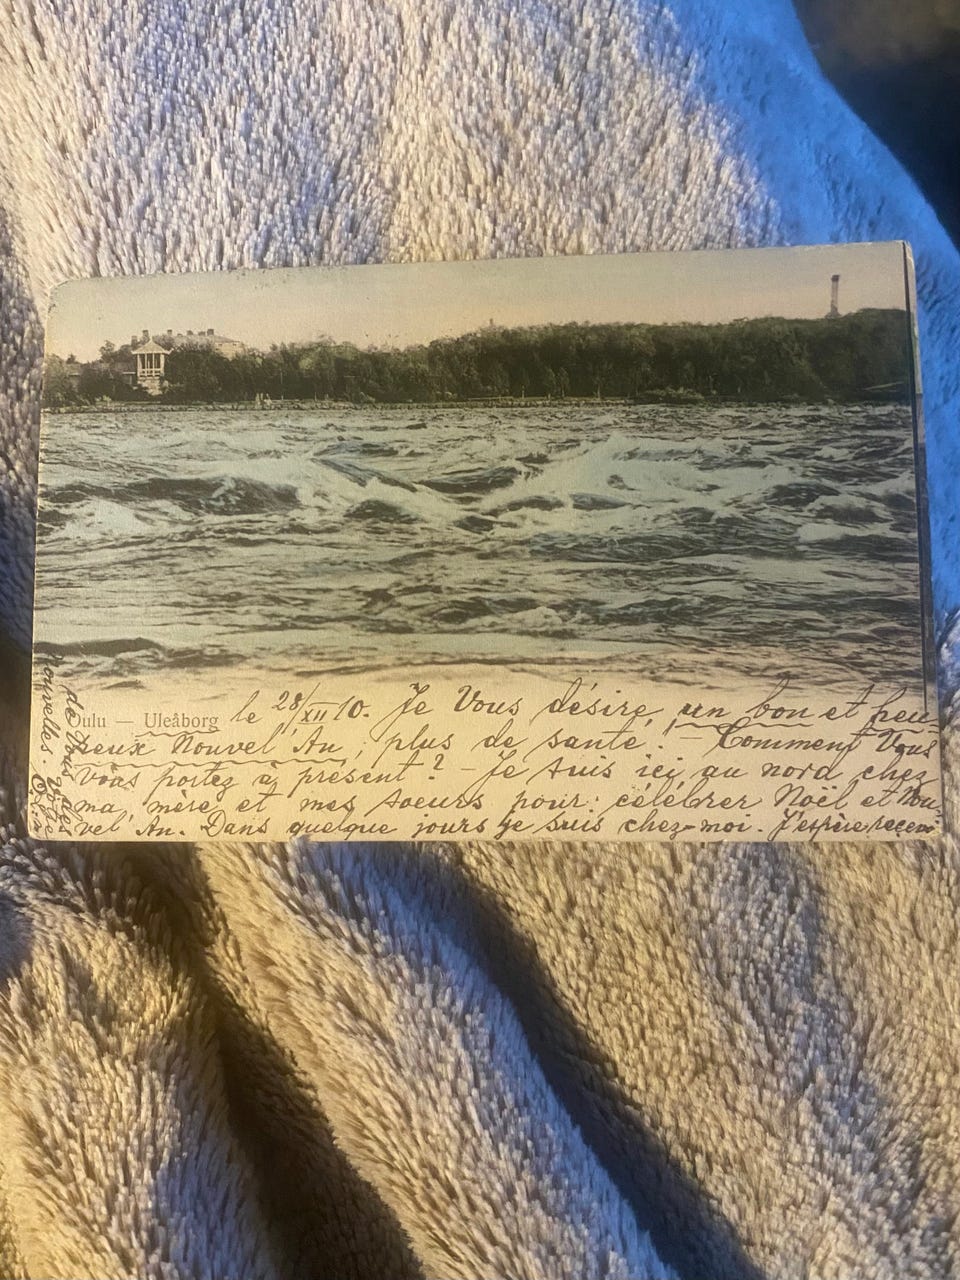 Oulu — Uleåborg le 28/XII 10. Je Vous désire un bon et heu-
reux Nouvel An, plus de santé! - Comment Vous
vous portez à présent? - Je suis ici au nord chez
ma mère et mes soeurs pour célébrer Noël et Nou-
vel' An. Dans quelque jours je suis chez-moi. J'espère recevoir
de Vous des
nouvelles. Votre